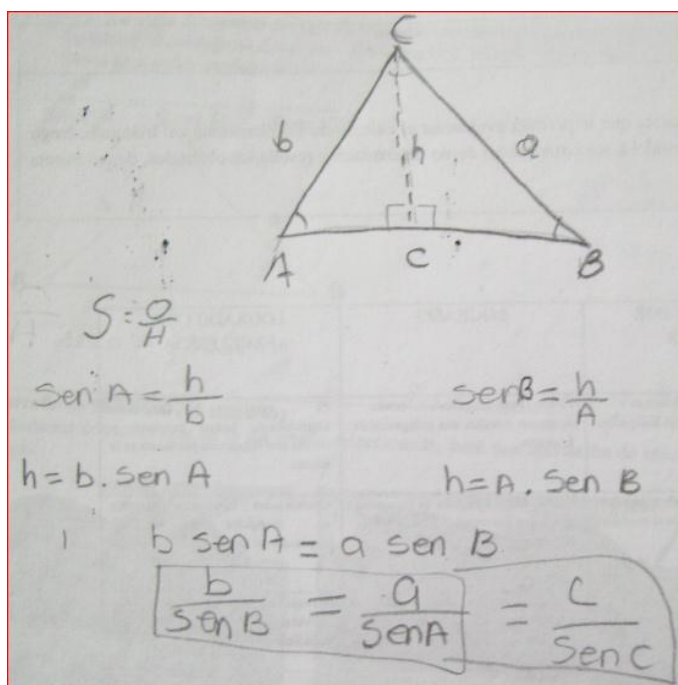 C
b h a
A C B
S = O/H
sen A = h/b sen B = h/A
h = b . sen A h = A . sen B
b sen A = a sen B
b/sen B = a/sen A = c/sen C